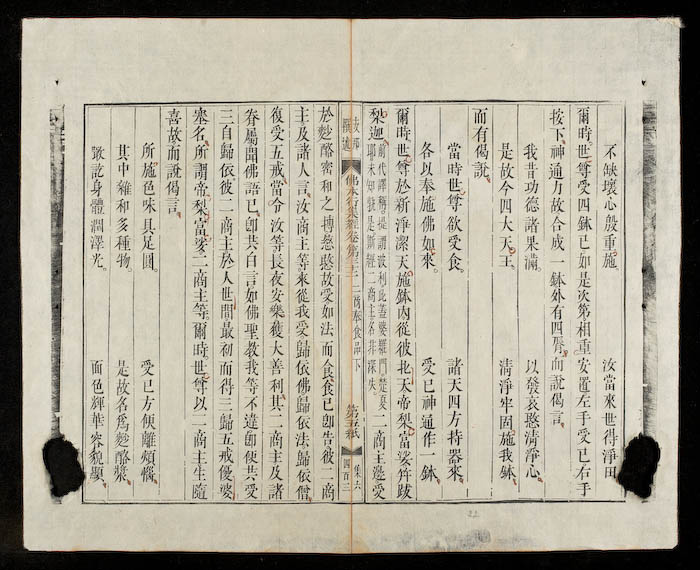 不缺壞心殷重施。　汝當來世得淨田
爾時。世尊受四鉢已如是次第相重安置左手受已右手
按下神通力故合成一鉢外有四脣。而說偈言。
我昔功德諸果滿。　以發哀愍清淨心
是故今四大天王。　清淨牢固施我鉢。
而有偈說。
當時世尊欲受食。　諸天四方持器來。
各以奉施佛如來。　受已神通作一鉢。
爾時世尊於新淨潔天施鉢內從彼北天帝梨富娑并跋
梨迦前代譯稱提謂波利此蓋婆羅門楚夏
耶未知孰是斯經二商主名非深失二商主邊受
支那撰述 佛本行集經卷第三十二 二商奉食品下 第五紙 四百三 集六
於麨酪蜜和之摶慈愍故受如法而食食已即告彼二商
主及諸人言。汝商主等來從我受歸依佛歸依法歸依僧
復受五戒當令汝等長夜安樂獲大善利其二商主及諸
眷屬聞佛語已。卽共白言如佛聖教我等不違卽便共受
三自歸依彼二商主於人世間最初而得三歸五戒優婆
塞名。所謂帝梨富娑二商主等爾時世尊以二商主生隨
喜故而說偈言
所施色味具足圓。　受已方便離煩惱
其中雜和多種物。　是故名為麨酪漿
噉訖身體潤澤光。　面色輝華容貌顯。